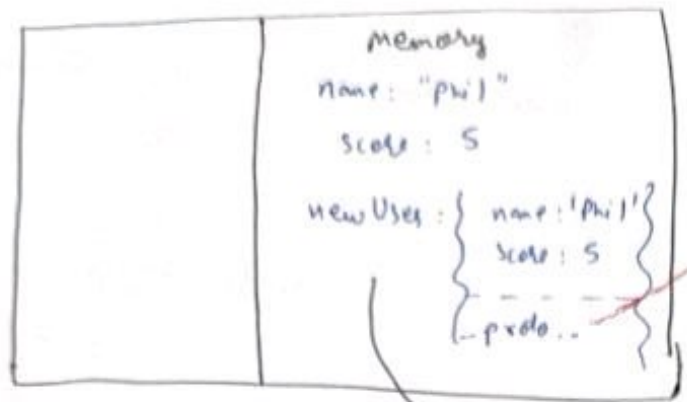 memory
name: "Phil"
score: 5
newUser: { name: 'Phil' }
score: 5
__proto__